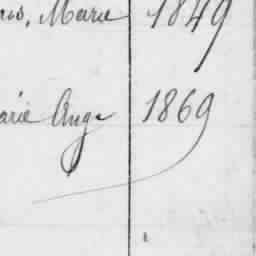 Marie 1849
arie Ange 1869